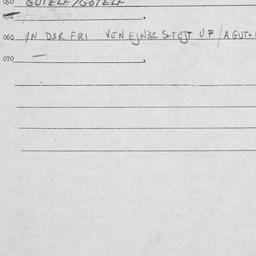 050 GUTELF/GOTELF
060 IN DЗR FRI VEN EJNЗR STEJT UF/A GUT
070